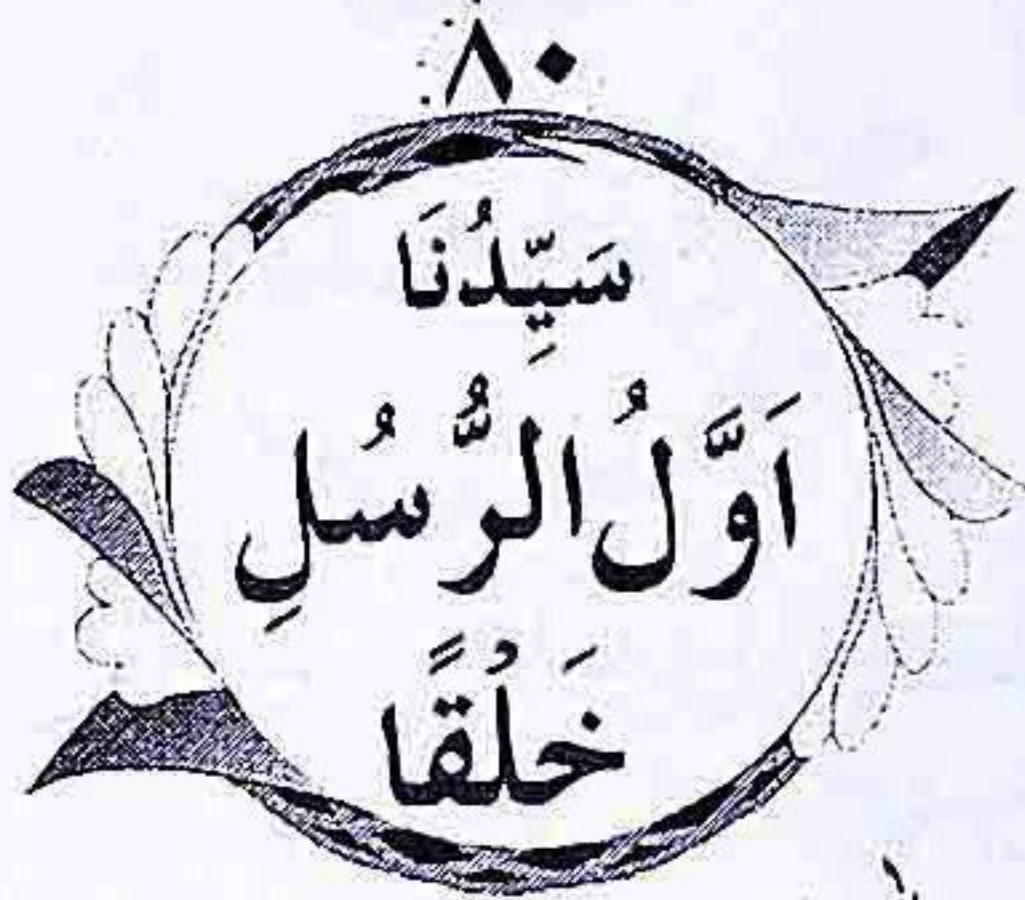 ٨٠
سَيِّدُنَا
اَوَّلُ الرُّسُلِ
خَلُقًا